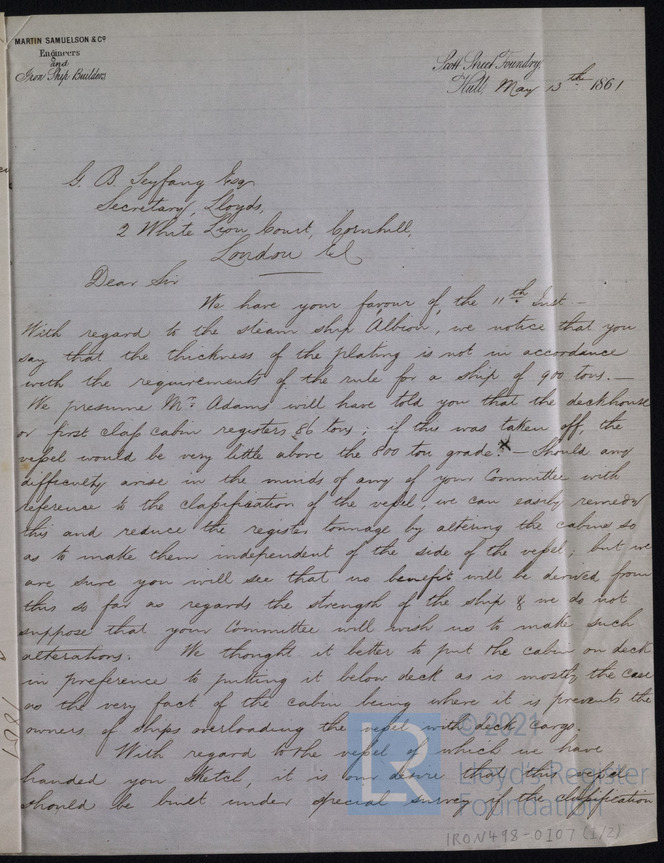 MARTIN SAMUELSON & Co
Engineers
and
Iron Ship Builders
Scott Street Foundry,
Hull, May 13th 1861
G. B. Seyfang Esq
Secretary, Lloyds,
2 White Lion Court, Cornhill,
London EC
Dear Sir
We have your favour of the 11th Inst.-
With regard to the steam ship Albion, we notice that you
say that the thickness of the plating is not in accordance
with the requirements of the rule for a ship of 900 tons.—
We presume Mr Adams will have told you that the deckhouse
or first class cabin registers 86 tons; if this was taken off the
vessel would be very little above the 800 ton grade. x — Should any
difficulty arise in the minds of any of your Committee with
reference to the classification of the vessel, we can easily remedy
this and reduce the register tonnage by altering the cabins so
as to make them independent of the side of the vessel; but we
are sure you will see that no benefit will be derived from
this so far as regards the strength of the ship & we do not
suppose that your Committee will wish us to make such
alterations. We thought it better to put the cabin on deck
in preference to putting it below deck as is mostly the case
as the very fact of the cabin being where it is prevents the
owners of ships overloading the vessel with deck cargo.
With regard to the vessel of which we have
handed you sketch, it is our desire that this vessel
should be built under special survey of the classification
© 2021
Lloyd's Register
Foundation
LR
IRON498-0107 (1/2)
1861